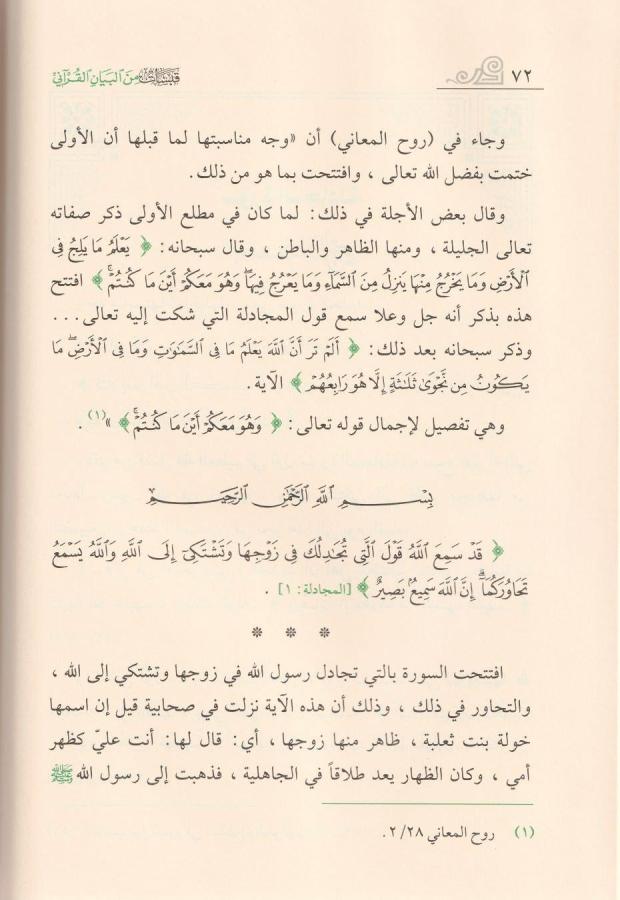 ٧٢
قبسات من البيان القرآني
وجاء في (روح المعاني) أن «وجه مناسبتها لما قبلها أن الأولى
ختمت بفضل الله تعالى ، وافتتحت بما هو من ذلك.
وقال بعض الأجلة في ذلك: لما كان في مطلع الأولى ذكر صفاته
تعالى الجليلة ، ومنها الظاهر والباطن ، وقال سبحانه: ﴿ يَعْلَمُ مَا يَلِجُ فِى
ٱلْأَرْضِ وَمَا يَخْرُجُ مِنْهَا يَنزِلُ مِنَ ٱلسَّمَآءِ وَمَا يَعْرُجُ فِيهَا ۖ وَهُوَ مَعَكُمْ أَيْنَ مَا كُنتُمْ ۚ ﴾ افتتح
هذه بذكر أنه جل وعلا سمع قول المجادلة التي شكت إليه تعالى...
وذكر سبحانه بعد ذلك: ﴿ أَلَمْ تَرَ أَنَّ ٱللَّهَ يَعْلَمُ مَا فِى ٱلسَّمَٰوَٰتِ وَمَا فِى ٱلْأَرْضِ ۖ مَا
يَكُونُ مِن نَّجْوَىٰ ثَلَٰثَةٍ إِلَّا هُوَ رَابِعُهُمْ ﴾ الآية.
وهي تفصيل لإجمال قوله تعالى: ﴿ وَهُوَ مَعَكُمْ أَيْنَ مَا كُنتُمْ ۚ ﴾ »(١) .
بِسْمِ ٱللَّهِ ٱلرَّحْمَٰنِ ٱلرَّحِيمِ
﴿ قَدْ سَمِعَ ٱللَّهُ قَوْلَ ٱلَّتِى تُجَٰدِلُكَ فِى زَوْجِهَا وَتَشْتَكِىٓ إِلَى ٱللَّهِ وَٱللَّهُ يَسْمَعُ
تَحَاوُرَكُمَآ ۚ إِنَّ ٱللَّهَ سَمِيعٌۢ بَصِيرٌ ﴾ [المجادلة: ١] .
* * *
افتتحت السورة بالتي تجادل رسول الله في زوجها وتشتكي إلى الله ،
والتحاور في ذلك ، وذلك أن هذه الآية نزلت في صحابية قيل إن اسمها
خولة بنت ثعلبة ، ظاهر منها زوجها ، أي: قال لها: أنت عليّ كظهر
أمي ، وكان الظهار يعد طلاقاً في الجاهلية ، فذهبت إلى رسول الله ﷺ
(١) روح المعاني ٢/٢٨ .